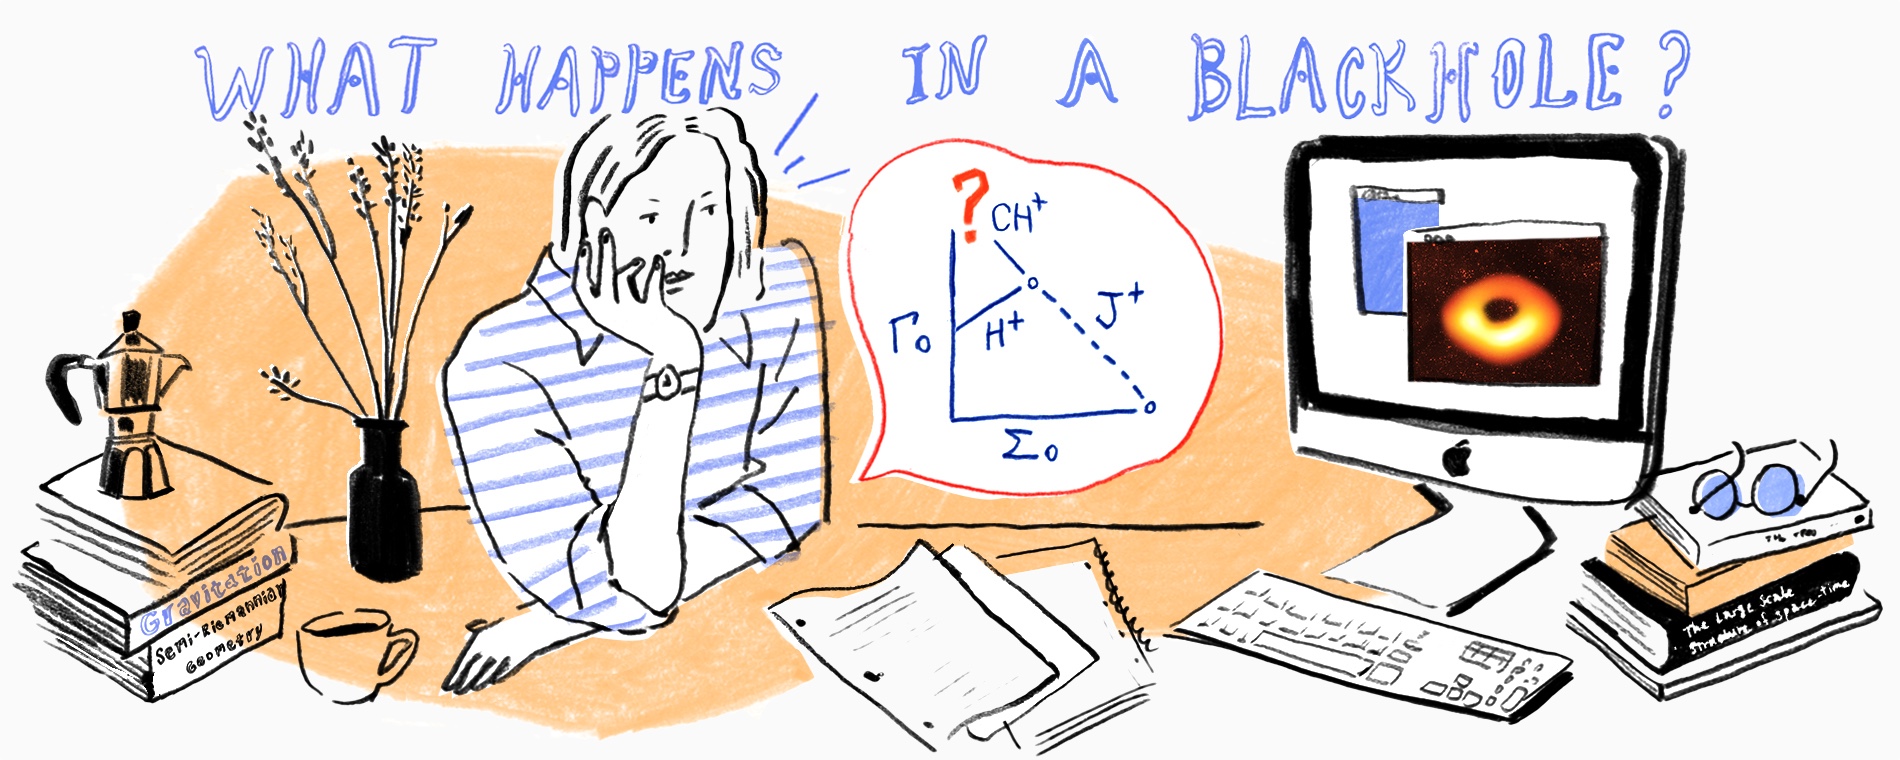 WHAT HAPPENS IN A BLACKHOLE?
?
CH⁺
J⁺
H⁺
Γ₀
Σ₀
Gravitation
Semi-Riemannian
Geometry
The Large Scale
Structure of Space-time